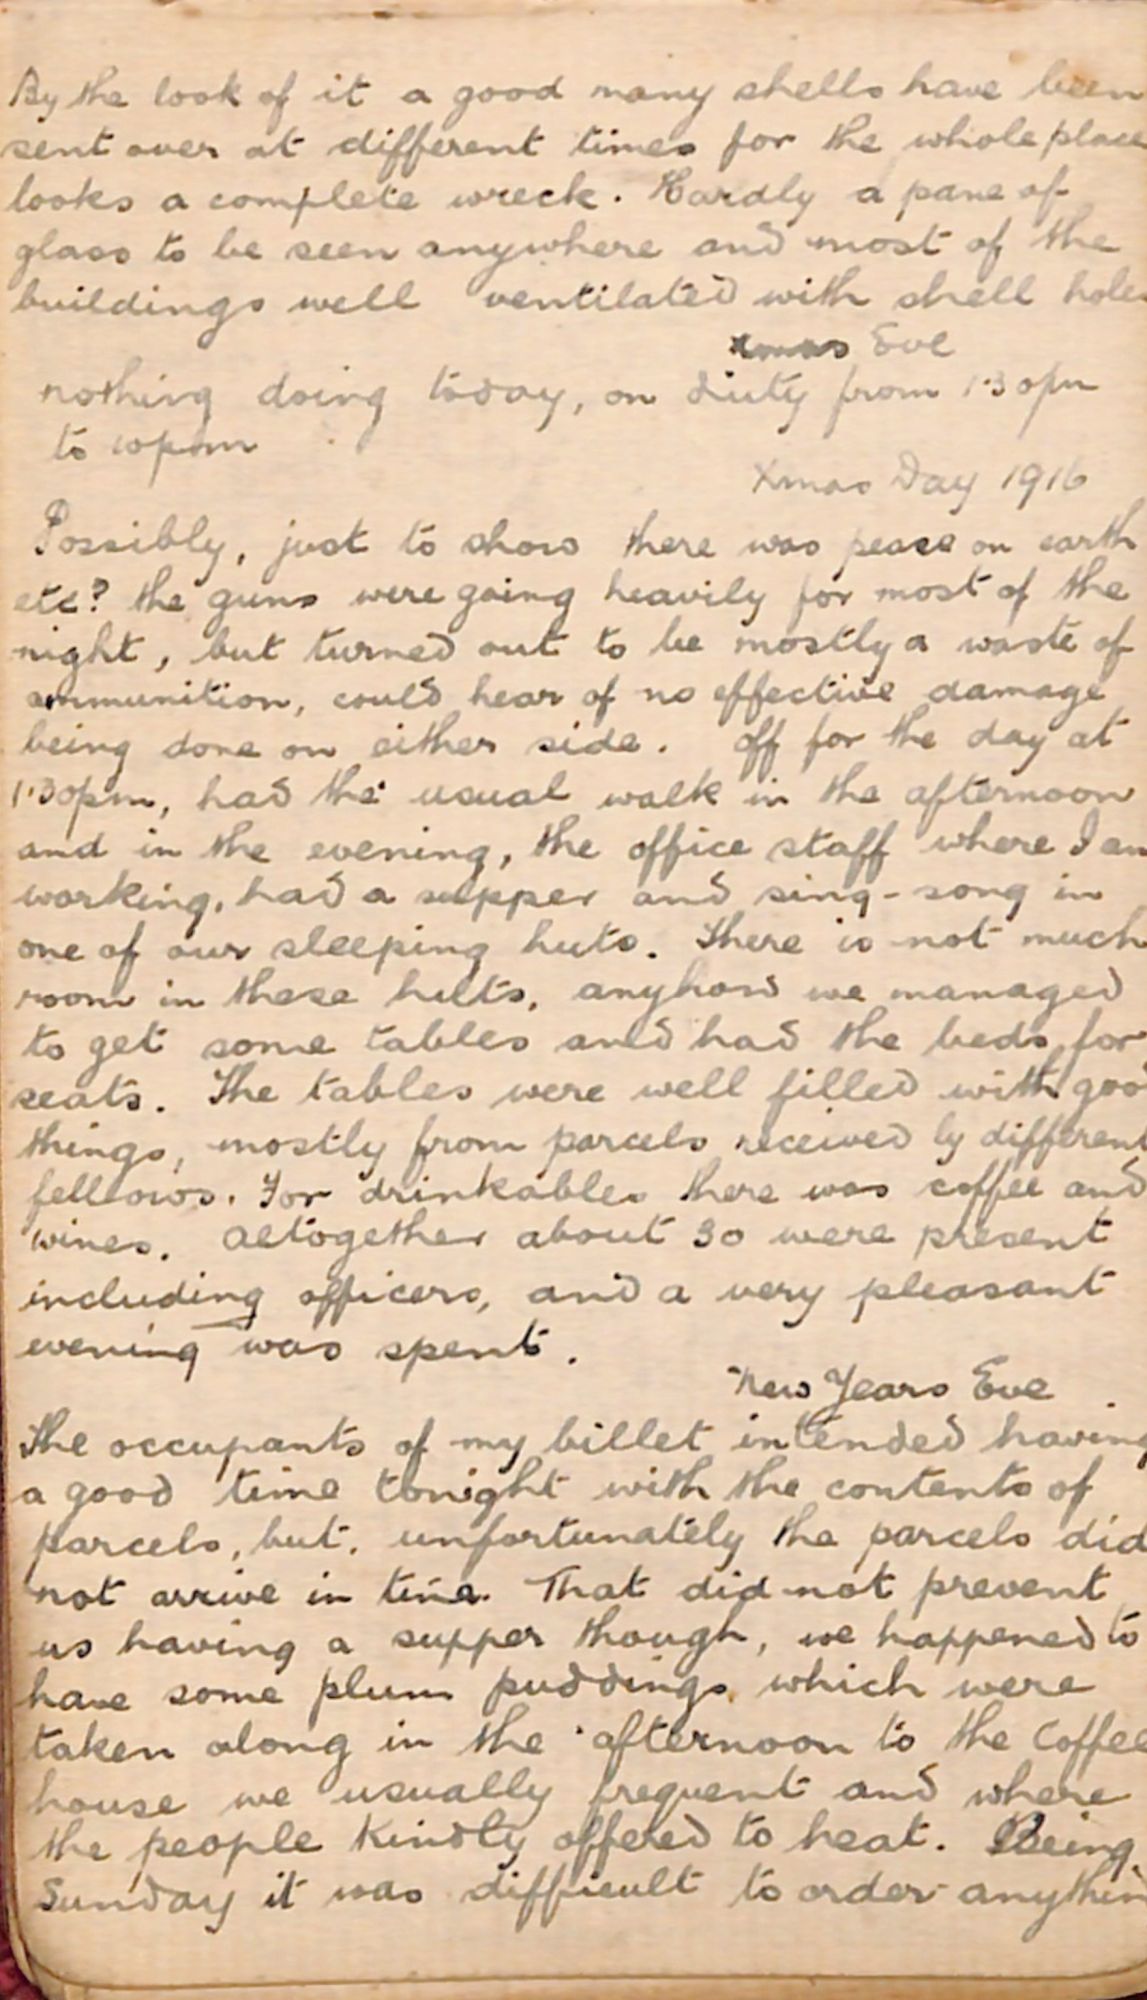 By the look of it a good many shells have been
sent over at different times for the whole place
looks a complete wreck. Hardly a pane of
glass to be seen anywhere and most of the
buildings well ventilated with shell holes
Xmas Eve
nothing doing today, on duty from 1.30pm
to 10pm
Xmas Day 1916
Possibly, just to show there was peace on earth
etc? the guns were going heavily for most of the
night, but turned out to be mostly a waste of
ammunition, could hear of no effective damage
being done on either side. Off for the day at
1.30pm, had the usual walk in the afternoon
and in the evening, the office staff where I am
working, had a supper and sing-song in
one of our sleeping huts. There is not much
room in these huts, anyhow we managed
to get some tables and had the beds for
seats. The tables were well filled with good
things, mostly from parcels received by different
fellows. For drinkables there was coffee and
wines. Altogether about 30 were present
including officers, and a very pleasant
evening was spent.
New Years Eve
The occupants of my billet intended having
a good time tonight with the contents of
parcels, but, unfortunately the parcels did
not arrive in time. That did not prevent
us having a supper though, we happened to
have some plum puddings which were
taken along in the afternoon to the Coffee
house we usually frequent and where
the people kindly offered to heat. Being
Sunday it was difficult to order anythin